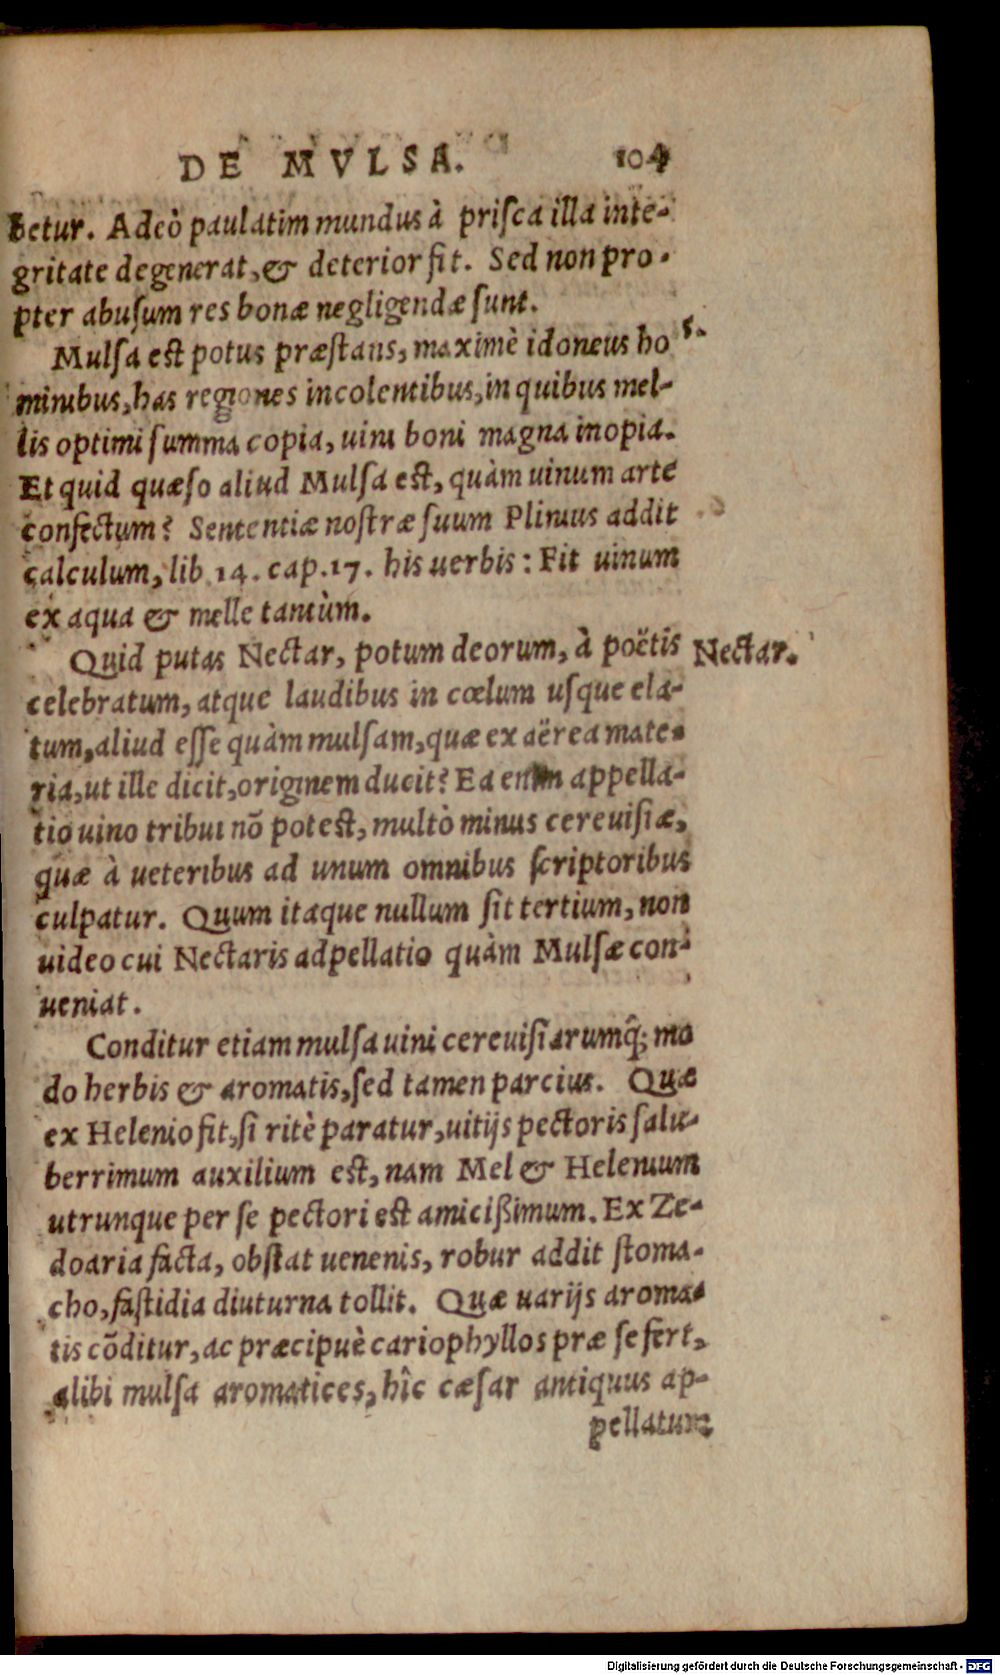 DE MVLSA. 104
betur. Adeò paulatim mundus à prisca illa inte-
gritate degenerat, & deterior fit. Sed non pro-
pter abusum res bonæ negligendæ sunt.
Mulsa est potus præstans, maximè idoneus ho
minibus, has regiones incolentibus, in quibus mel-
lis optimi summa copia, uini boni magna inopia.
Et quid quæso aliud Mulsa est, quàm uinum arte
confectum? Sententiæ nostræ suum Plinius addit
calculum, lib 14. cap.17. his uerbis: Fit uinum
ex aqua & melle tantùm.
Quid putas Nectar, potum deorum, à poëtis
Nectar.
celebratum, atque laudibus in cœlum usque ela-
tum, aliud esse quàm mulsam, quæ ex aërea mate-
ria, ut ille dicit, originem ducit? Ea enim appella-
tio uino tribui nõ potest, multò minus cereuisiæ,
quæ à ueteribus ad unum omnibus scriptoribus
culpatur. Quum itaque nullum sit tertium, non
uideo cui Nectaris adpellatio quàm Mulsæ con-
ueniat.
Conditur etiam mulsa uini cereuisiarumq́; mo
do herbis & aromatis, sed tamen parcius. Quæ
ex Helenio fit, si ritè paratur, uitijs pectoris salu-
berrimum auxilium est, nam Mel & Helenium
utrunque per se pectori est amicißimum. Ex Ze-
doaria facta, obstat uenenis, robur addit stoma-
cho, fastidia diuturna tollit. Quæ uarijs aroma-
tis cõditur, ac præcipuè cariophyllos præ se fert,
alibi mulsa aromatices, hîc cæsar antiquus ap-
pellatum
Digitalisierung gefördert durch die Deutsche Forschungsgemeinschaft - DFG